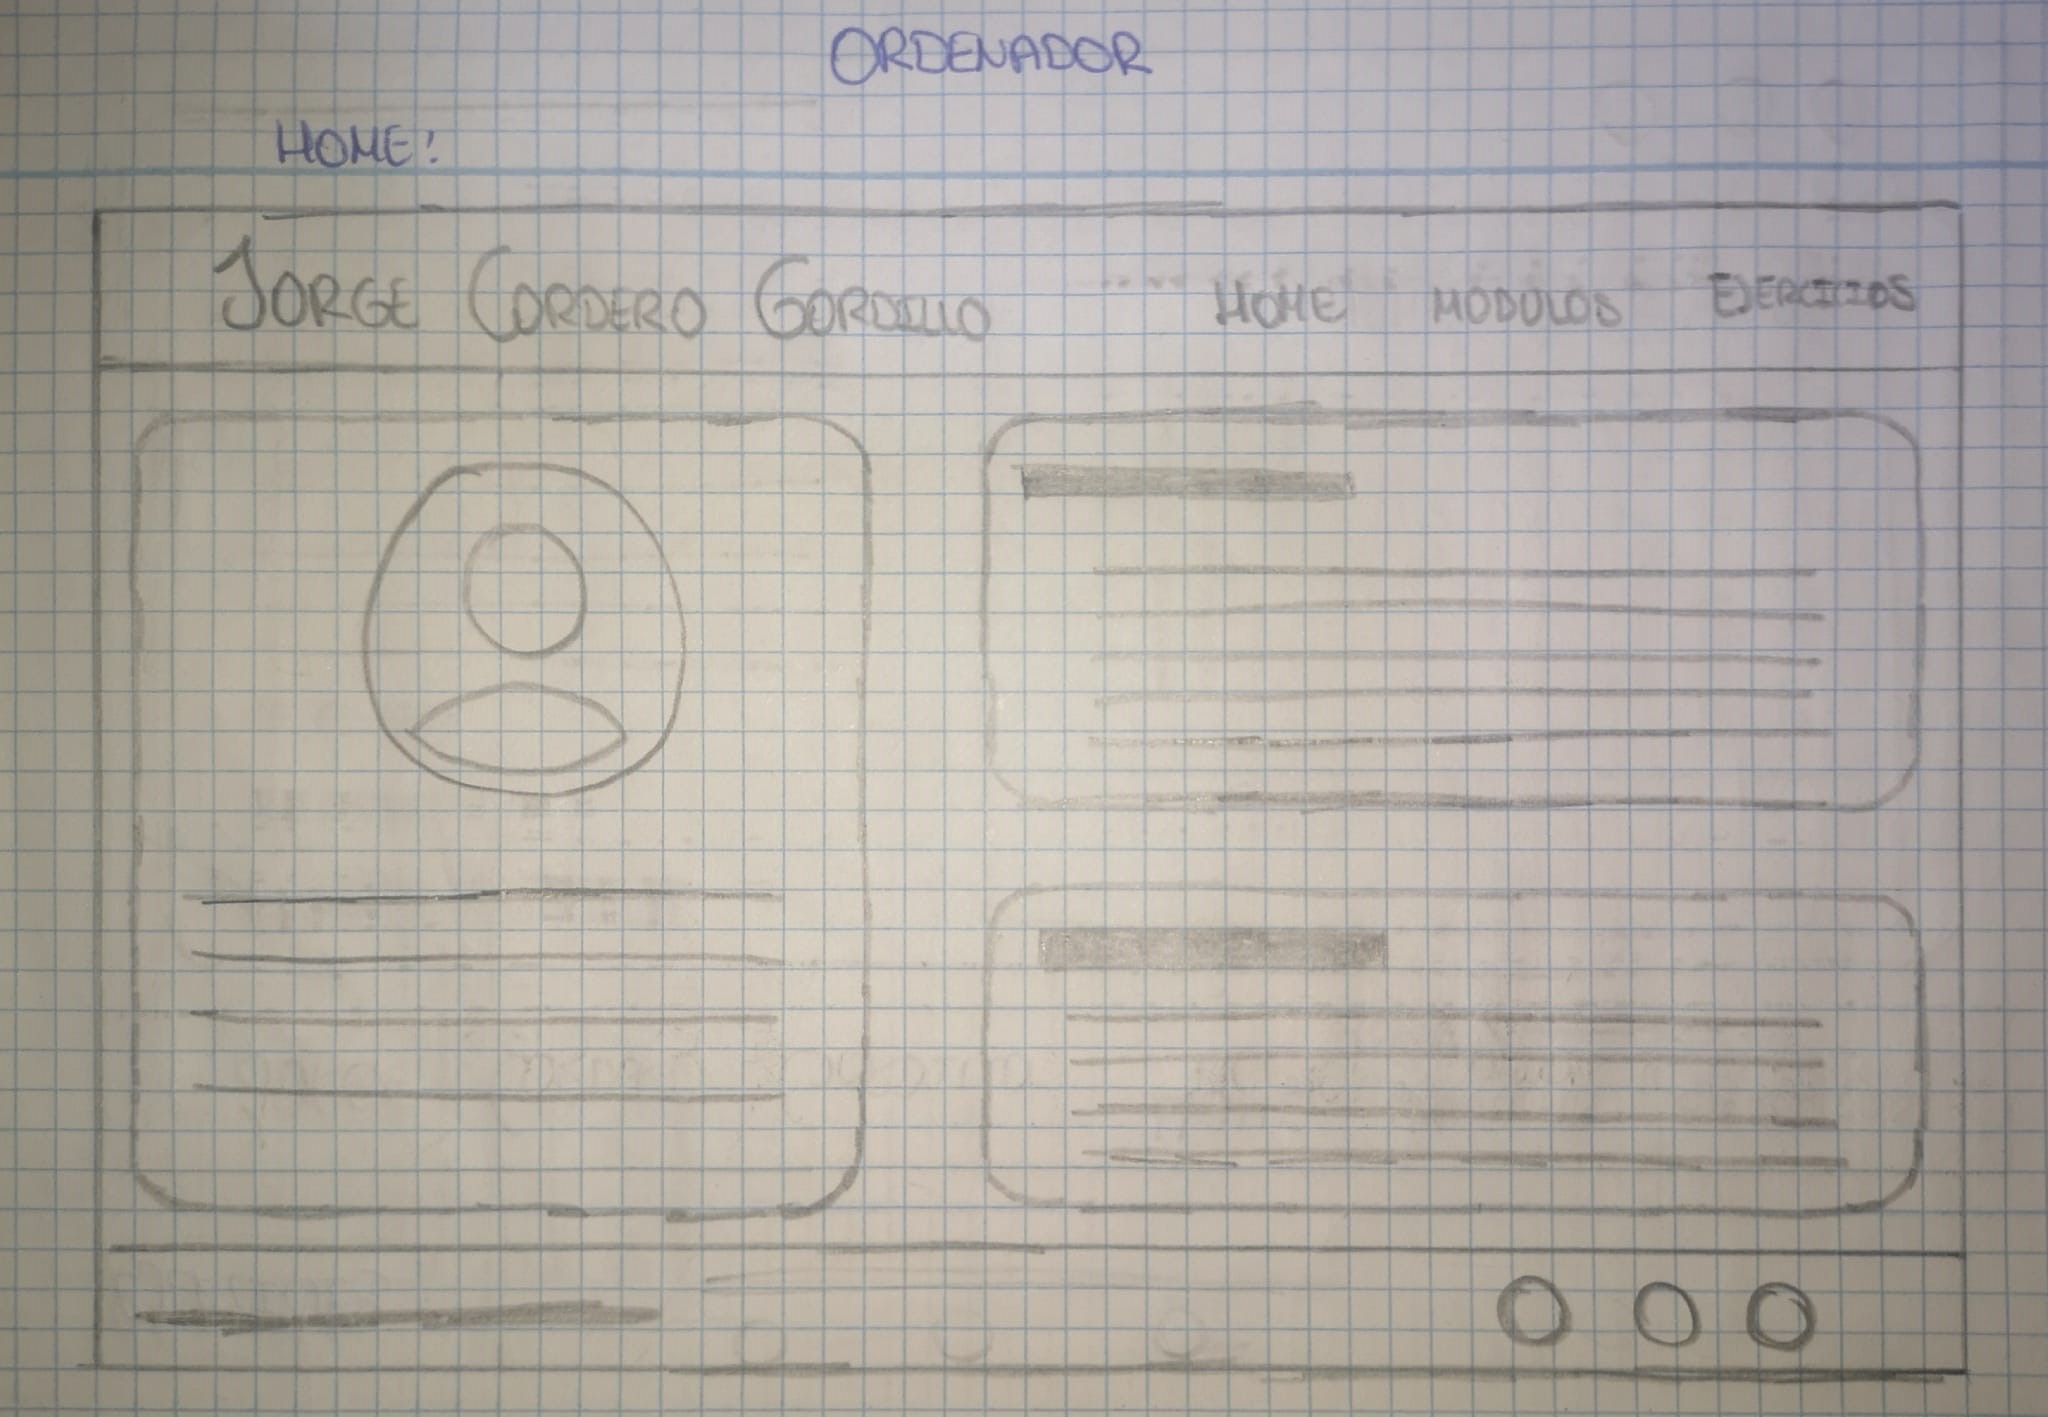 ORDENADOR
HOME:
JORGE CORDERO GORDILLO HOME MÓDULOS EJERCICIOS